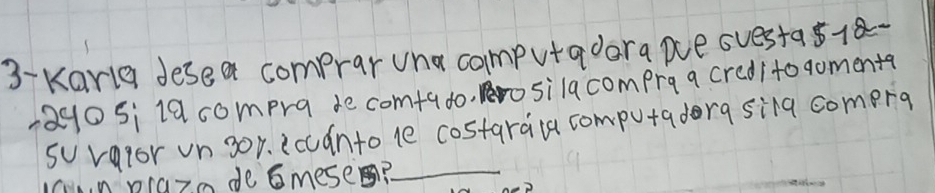 3-Karla desea comprar una computadora que cuesta $12-
-240 si la compra de comtado. Pero si la compra a credito aumenta
su valor un 30%. ¿cuánto le costará la computadora si la compra
plazo de 6 meses?